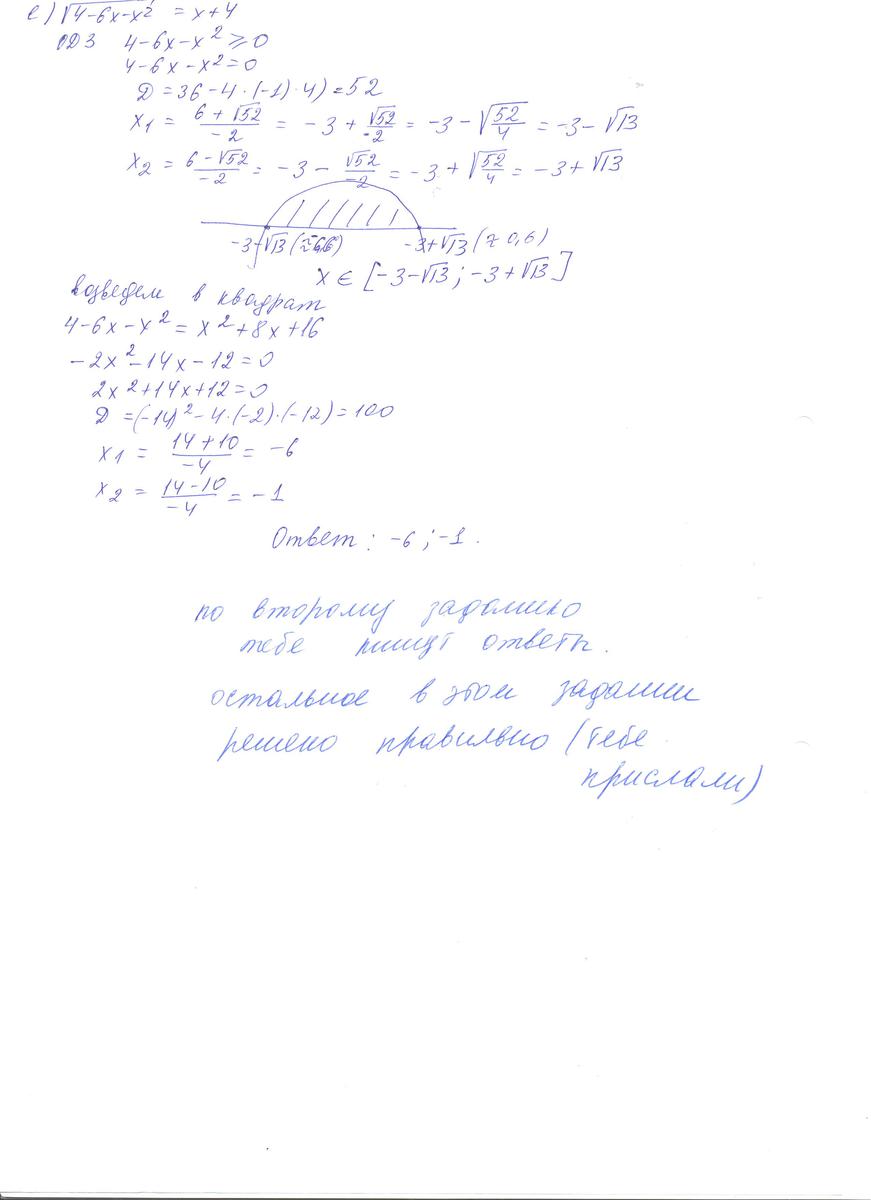 е) √4-6x-x² = x+4
ОДЗ 4-6x-x² ≥ 0
4-6x-x² = 0
D = 36-4·(-1)·4) = 52
x₁ = (6+√52)/-2 = -3 + √52/-2 = -3 - √(52/4) = -3-√13
x₂ = (6-√52)/-2 = -3 - √52/-2 = -3 + √(52/4) = -3+√13
-3-√13 -3+√13 (≈0,6)
x ∈ [-3-√13; -3+√13]
возведем в квадрат
4-6x-x² = x²+8x+16
-2x²-14x-12=0
2x²+14x+12=0
D =(-14)²-4·(-2)·(-12)=100
x₁ = (14+10)/-4 = -6
x₂ = (14-10)/-4 = -1
Ответ: -6; -1.
по второму заданию
тебе пишут ответы.
остальное в этом задании
решено правильно (тебе
прислали)